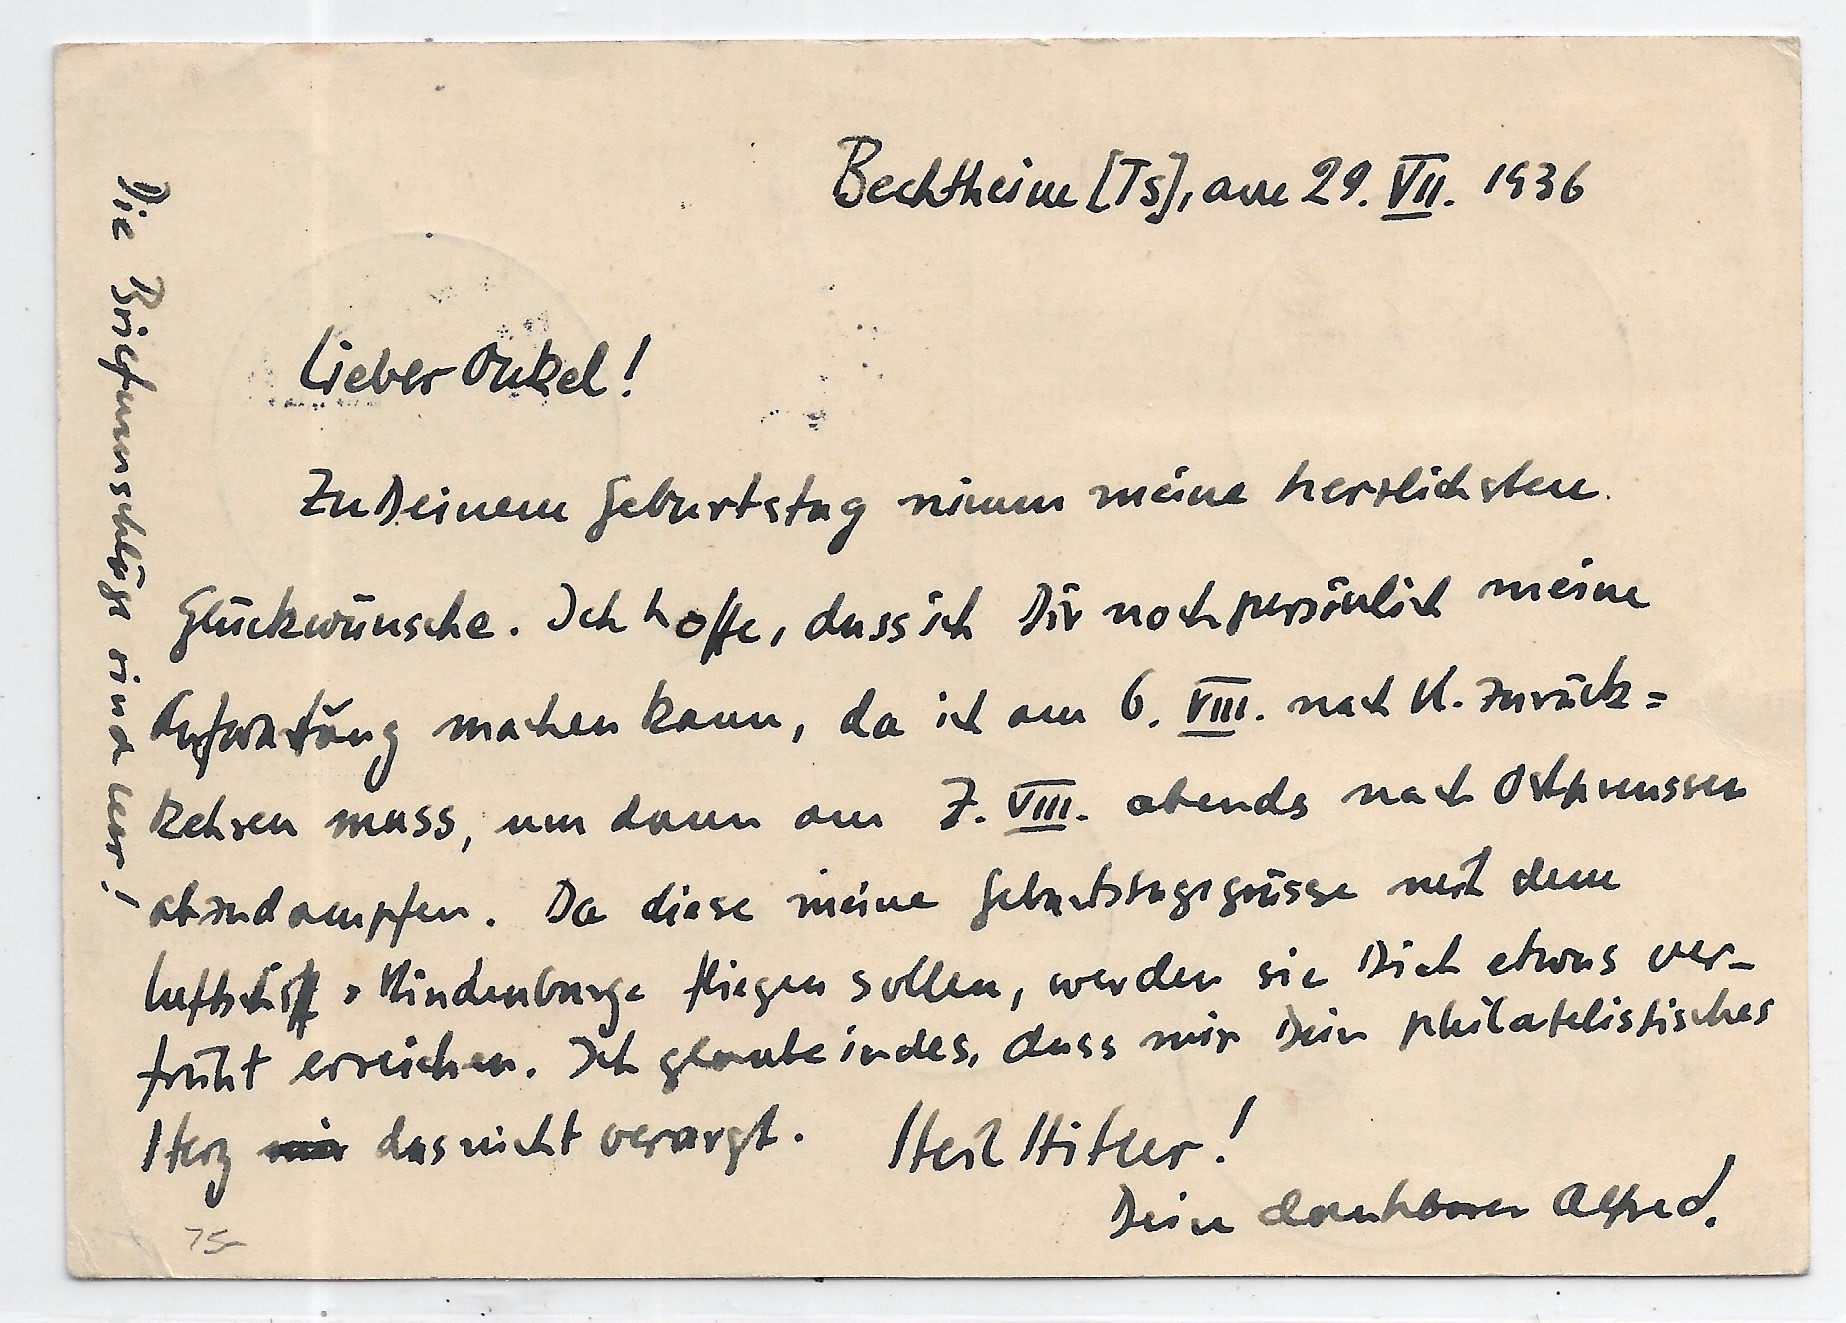 Bechtheim [Ts], am 29. VII. 1936
Lieber Onkel!
Zu Deinem Geburtstag nimm meine herzlichsten
Glückwünsche. Ich hoffe, dass ich Dir noch persönlich meine
Aufwartung machen kann, da ich am 6. VIII. nach U. zurück=
kehren muss, um dann am 7. VIII. abends nach Ostpreussen
abzudampfen. Da diese meine Geburtstagsgrüsse mit dem
Luftschiff »Hindenburg« fliegen sollen, werden sie Dich etwas ver-
früht erreichen. Ich glaube indes, dass mir Dein philatelistisches
Herz mir das nicht verargt. Heil Hitler!
Dein dankbarer Alfred.
Die Briefumschläge sind leer!
75-